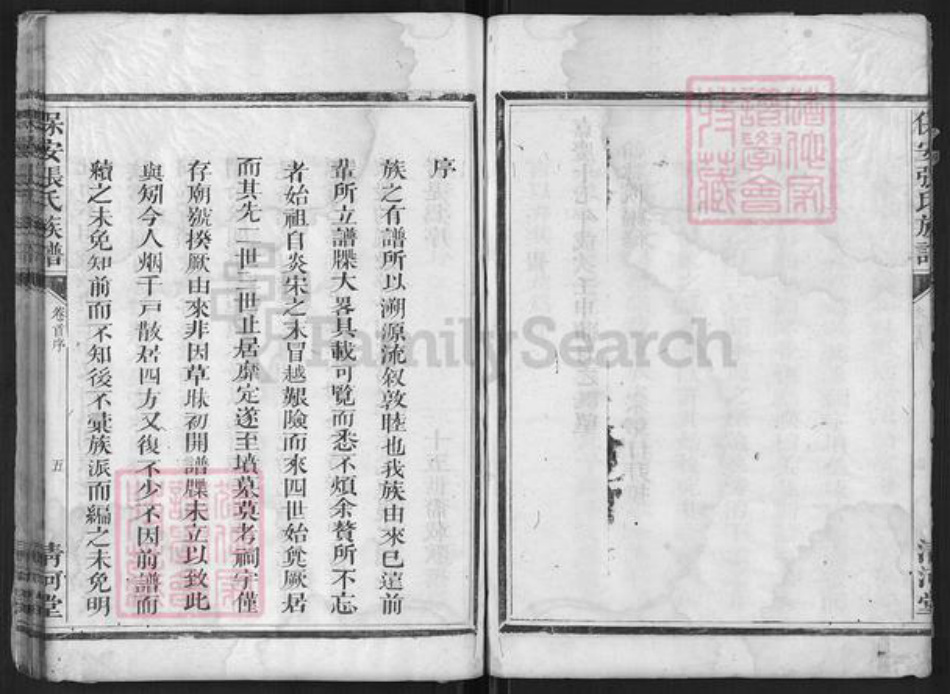 保安張氏族譜
清河堂
序
族之有譜所以溯源流叙敦睦也我族由來已遠前
輩所立譜牒大畧具載可覽而悉不煩余贅所不忘
者始祖自炎宋之末冒越艱險而來四世始奠厥居
而其先二世三世止居靡定遂至墳墓莫考祠宇僅
存廟號揆厥由來非因草昧初開譜牒未立以致此
與矧今人烟千戸散居四方又復不少不因前譜而
續之未免知前而不知後不彚族派而編之未免明
保安張氏族譜
卷首序
五
清河堂
FamilySearch